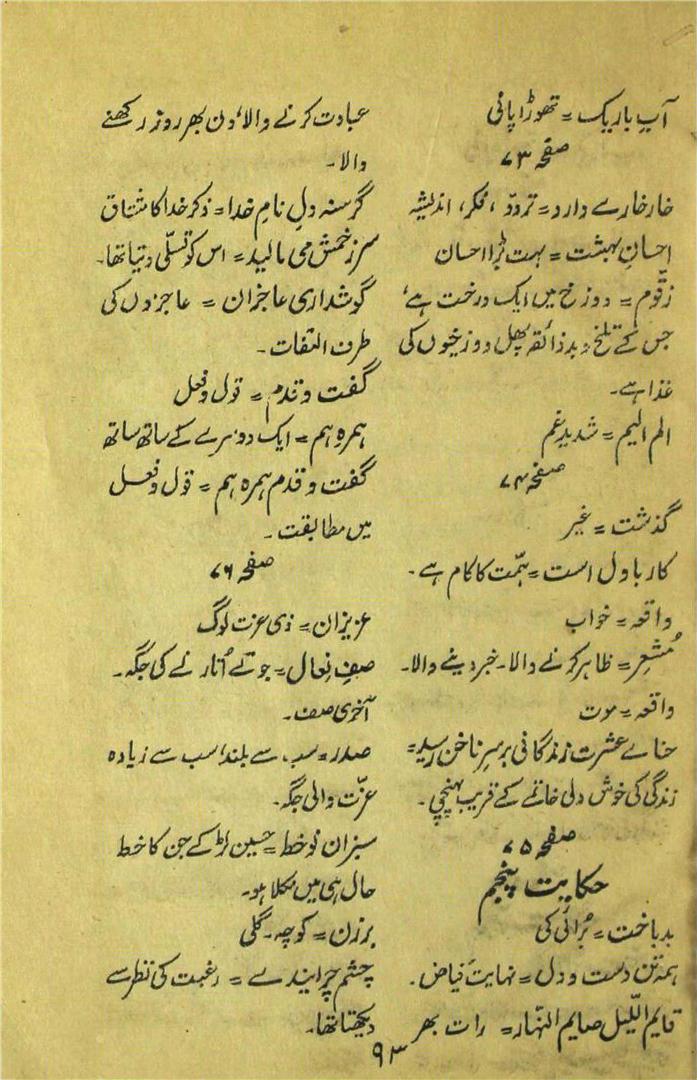 آبِ باریک = تھوڑا پانی
صفحہ ۷۳
خارخارے دارد = تردد، فکر، اندیشہ
احسانِ بہشت = بہت بڑا احسان
زقّوم = دوزخ میں ایک درخت ہے،
جس کے تلخ و بدذائقہ پھل دوزخیوں کی
غذا ہے۔
الم الیم = شدید غم
صفحہ ۷۴
گذشت = غیر
کار باول است = ہمّت کا کام ہے۔
واقعہ = خواب
مُشعِر = ظاہر کرنے والا۔ خبر دینے والا۔
واقعہ = موت
حنائے عشرت زندگانی بر سرِ ناخن رسید =
زندگی کی خوش دلی خاتمے کے قریب پہنچی۔
صفحہ ۷۵
حکایت پنجم
بد باخت = بُرائی کی
ہمہ تن دست و دل = نہایت فیاض۔
قایم اللّیل صایم النّہار = رات بھر
عبادت کرنے والا، دن بھر روزہ رکھنے
والا۔
گرسنہ دلِ نامِ خدا = ذکرِ خدا کا مشتاق
سرِ زخمش می مالید = اس کو تسلّی دیتا تھا۔
گوشداری عاجزان = عاجزوں کی
طرف التفات۔
گفت و قدم = قول و فعل
ہمرہِ ہم = ایک دوسرے کے ساتھ ساتھ
گفت و قدم ہمرہ ہم = قول و فعل
میں مطابقت۔
صفحہ ۷۶
عزیزان = ذی عزت لوگ
صفِ نعال = جوتے اُتارنے کی جگہ۔
آخری صف۔
صدر = سب سے بلند، سب سے زیادہ
عزّت والی جگہ۔
سبزان نوخط = حسین لڑکے جن کا خط
حال ہی میں نکلا ہو۔
برزن = کوچہ۔ گلی
چشم چرانیدے = رغبت کی نظر سے
دیکھتا تھا۔
۹۳